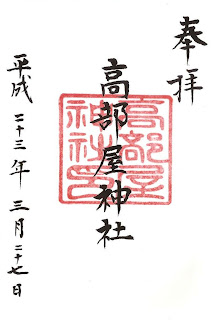 奉拝
高部屋神社
高部屋神社印
平成二十三年三月二十七日